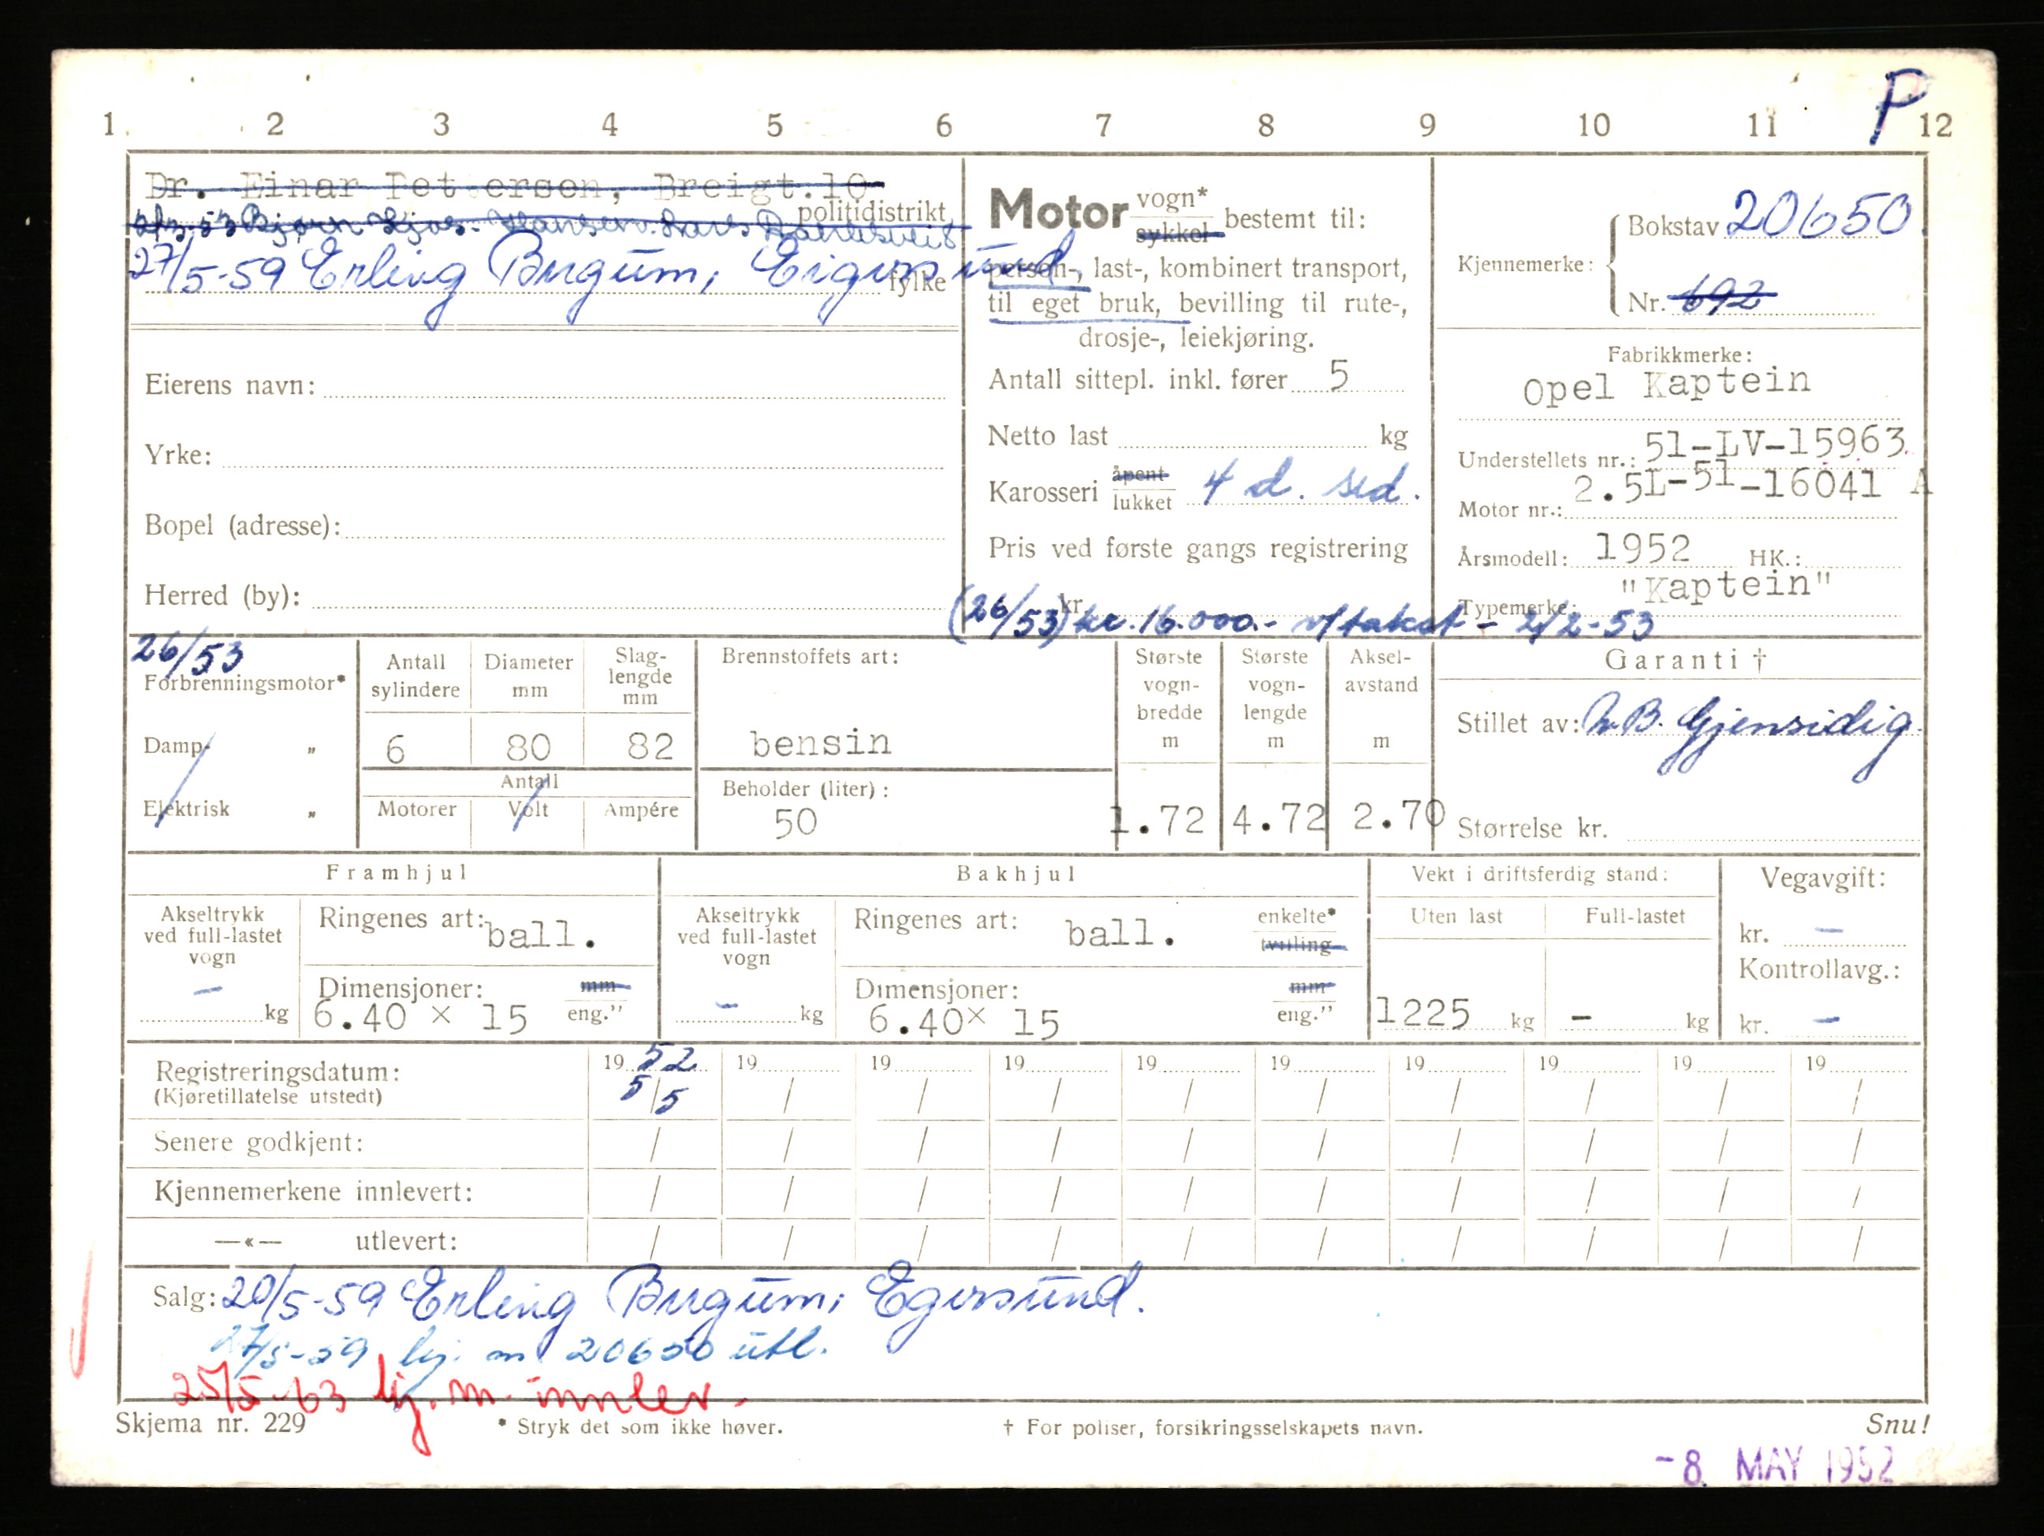 P
1 2 3 4 5 6 7 8 9 10 11 12
Dr. Einar Pettersen, Breigt.10
politidistrikt
27/5-59 Erling Birgum, Eigersund
fylke
Eierens navn:
Yrke:
Bopel (adresse):
Herred (by):
Motor vogn* sykkel bestemt til:
person-, last-, kombinert transport,
til eget bruk, bevilling til rute-,
drosje-, leiekjøring.
Antall sittepl. inkl. fører 5
Netto last kg
Karosseri åpent lukket 4 d. sed.
Pris ved første gangs registrering
kr.
(26/53) kr. 16.000.- v/takst - 2/2-53
Kjennemerke: Bokstav 20650
Nr. 692
Fabrikkmerke:
Opel Kaptein
Understellets nr.: 51-LV-15963
2.5L-51-16041 A
Motor nr.:
Årsmodell: 1952 HK.:
"Kaptein"
Typemerke:
26/53
Forbrenningsmotor*
Damp- "
Elektrisk "
Antall sylindere
Diameter mm
Slag-lengde mm
6 80 82
Antall
Motorer Volt Ampére
Brennstoffets art:
bensin
Beholder (liter):
50
Største vogn-bredde m
1.72
Største vogn-lengde m
4.72
Aksel-avstand m
2.70
Garanti †
Stillet av: Gjensidig.
Størrelse kr.
Framhjul
Akseltrykk ved full-lastet vogn
- kg
Ringenes art: ball.
Dimensjoner: mm
6.40 x 15 eng."
Bakhjul
Akseltrykk ved full-lastet vogn
- kg
Ringenes art: ball. enkelte* tvilling
Dimensjoner: mm
6.40x 15 eng."
Vekt i driftsferdig stand:
Uten last Full-lastet
1225 kg - kg
Vegavgift:
kr. -
Kontrollavg.:
kr. -
Registreringsdatum: 1952 19 19 19 19 19 19 19 19 19
(Kjøretillatelse utstedt) 5/5 / / / / / / / / /
Senere godkjent: / / / / / / / / / /
Kjennemerkene innlevert: / / / / / / / / / /
—«— utlevert: / / / / / / / / / /
Salg: 20/5-59 Erling Birgum, Egersund.
27/5-59 kj. m 20650 utl.
25/5-63 kj. m. innlev.
Skjema nr. 229 * Stryk det som ikke høver. † For poliser, forsikringsselskapets navn. Snu!
-8. MAY 1952